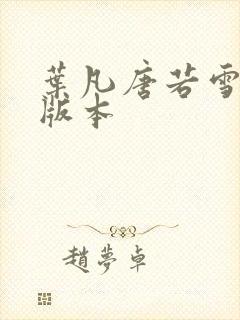 葉凡唐若雪
版本
趙夢卓